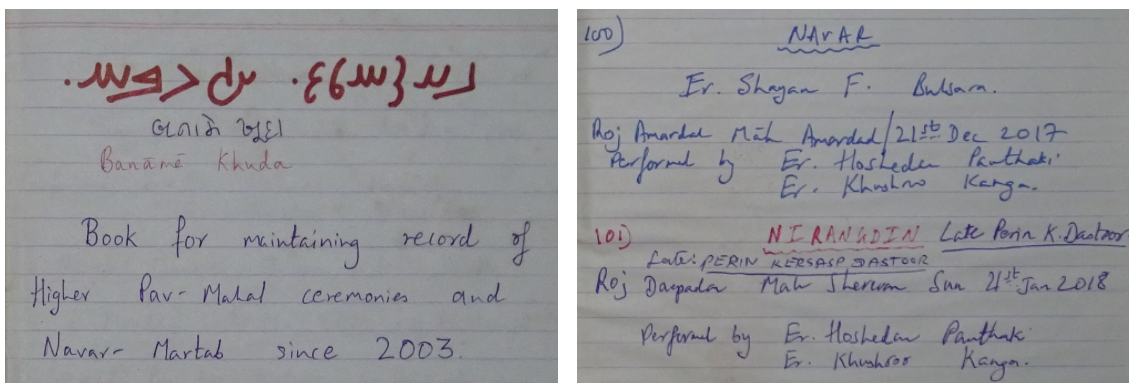 બનામે ખુદા
Banāmē Khuda
Book for maintaining record of
Higher Pav-Mahal ceremonies and
Navar-Martab since 2003.
100)
NAVAR
Er. Shayan F. Bulsara.
Roj Amardad Māh Amardad/21st Dec 2017
Performed by Er. Hoshedar Panthaki
Er. Khushroo Kanga.
101) NIRANGDIN Late Perin K. Dastoor
Late: PERIN KERSASP DASTOOR
Roj Daepadar Mah Sherevar Sun 21st Jan 2018
Performed by Er. Hoshedar Panthaki
Er. Khushroo Kanga.